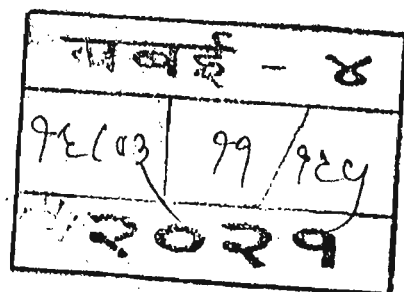 बबई - ४
१६८०३ ११/१६५
२०२१